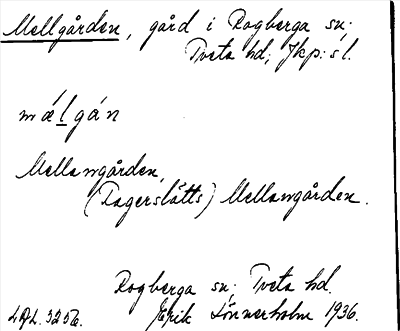 Mellgården, gård i Rogberga sn.
Tveta hd; Jkp:s l.
mǽlgán
Mellangården,
(Dagerslätts) Mellangården.
Rogberga sn; Tveta hd.
L.A.L. 3256. Erik Linnerholm 1936.